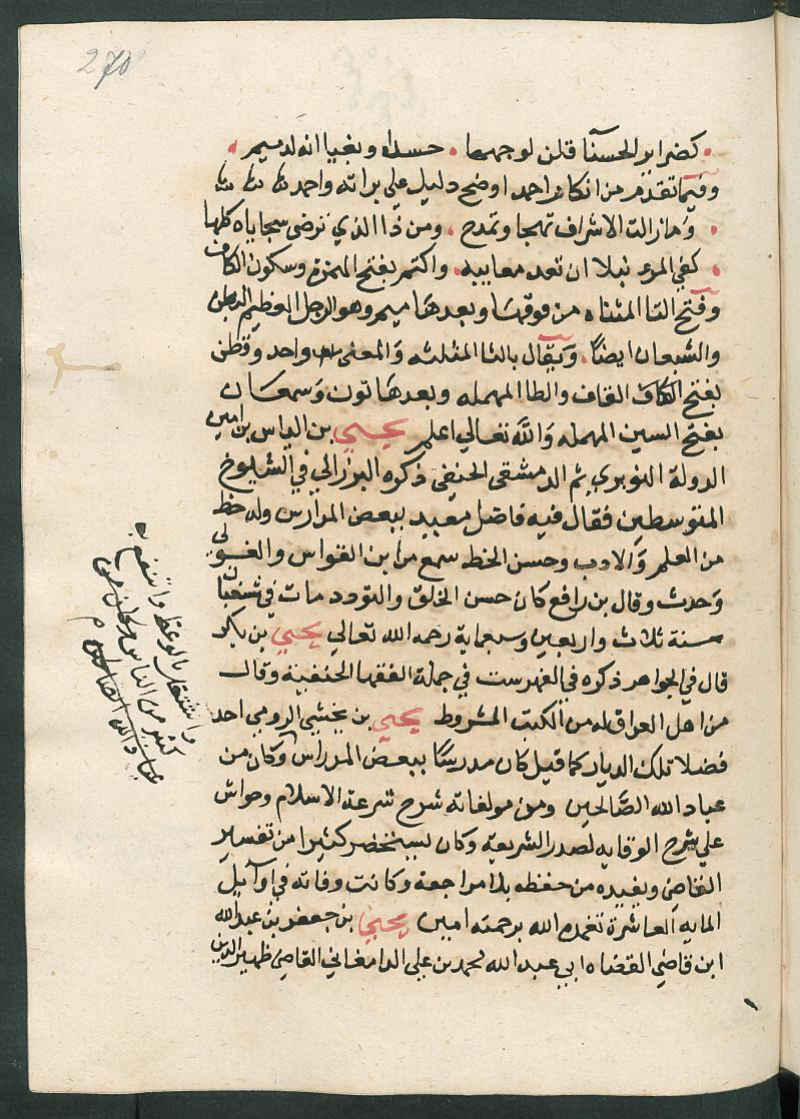 270
كضراير الحسنا قلن لوجهها . حسدا وبغيا انه لدميم .
وفيما تقدم من انكار احمد اوضح دليل علي براته واحمد
. وما زالت الاشراف تهجا وتمدح . ومن ذا الذي نرضى سجاياه كلها
. كفي المرء نبلا ان تعد معاييبه . واكتم بفتح الهمزة وسكون الكاف
وفتح التا المثناه من فوقها وبعدها ميم وهو الرجل العظيم البطن
والشبعان ايضا . ويقال بالثا المثلثه والمعنى واحد وقطن
بفتح القاف والطا المهمله وبعدها نون وسمعان
بفتح السين المهمله والله تعالي اعلم يحيي بن الياس بن امين
الدولة النوبري ثم الدمشقى الحنيفى ذكره البرزالي في الشيوخ
المتوسطين فقال فيه فاضل معيد ببعض المدارس وله حظ
من العلم والادب وحسن الخط سمع من ابن القواس والغسولي
وحدث وقال بن رافع كان حسن الخلق والتودد مات في شعبان
سنة ثلاث واربعين وسبعماية رحمه الله تعالي يحيي بن بكر
قال في الجواهر ذكره في الفهرست في جملة الفقها الحنفية وقال
من اهل العراق له من الكتب الشروط يحيي بن بخشي الرومي احد
فضلا تلك الديار كما قيل كان مدرسا ببعض المدراس وكان من
عباد الله الصالحين ومن مولفاته شرح شرعة الاسلام وحواش
علي شرح الوقايه لصدر الشريعه وكان يستحضر كثيرا من تفسير
القاضي ويفيده من حفظه بلا مراجعة وكانت وفاته في اوآيل
المايه العاشرة تغمده الله برحمته امين يحيي بن جعفر بن عبد الله
ابن قاضي القضاه ابي عبد الله محمد بن علي الدامغاني القاضي ظهير الدين
واشتغل بالوعظ وانتفع به
كثير من الناس وكان من
عباد الله الصالحين